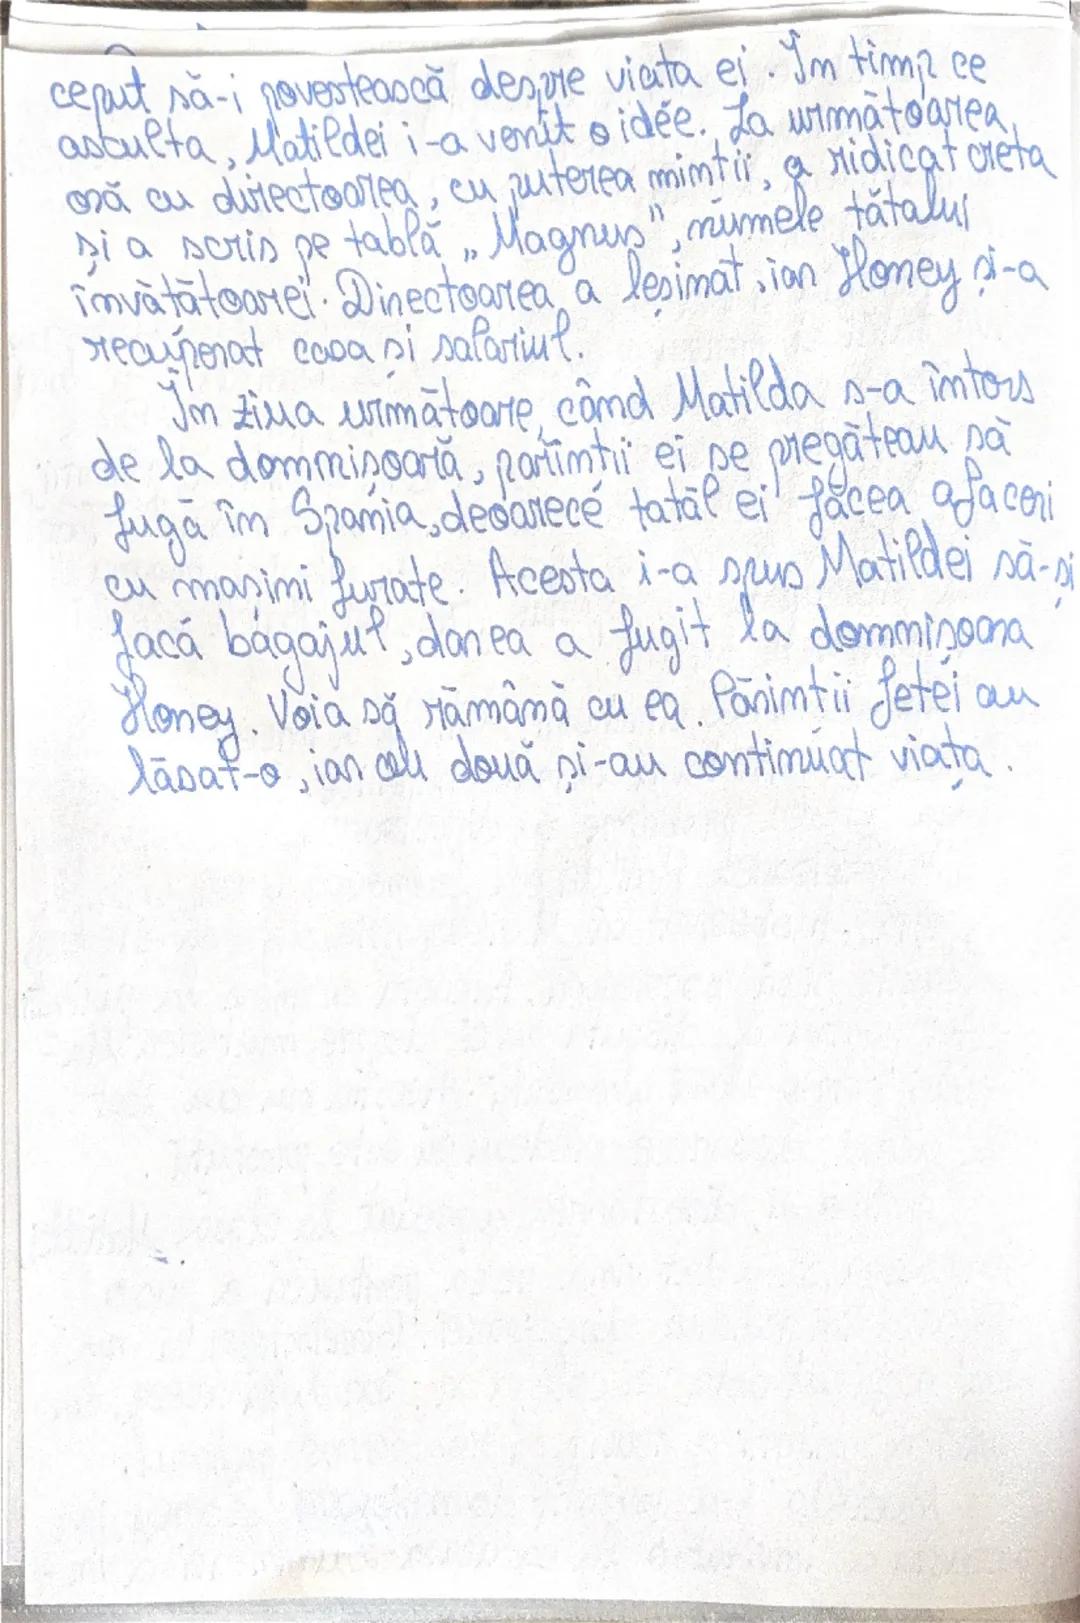 ceput să-i povestească despre viața ei. În timp ce
asculta, Matildei i-a venit o idée. La următoarea
oră cu directoarea, cu puterea minții, a ridicat creta
și a scris pe tablă „Magnus", numele tătalui
învățătoarei. Directoarea a leșinat, iar Honey și-a
recuperat casa și salariul.
În ziua următoare, când Matilda s-a întors
de la domnișoară, părinții ei se pregăteau să
fugă în Spania, deoarece tatăl ei făcea afaceri
cu mașini furate. Acesta i-a spus Matildei să-și
facă bagajul, dar ea a fugit la domnișoara
Honey. Voia să rămână cu ea. Părinții fetei au
lăsat-o, iar cele două și-au continuat viața.